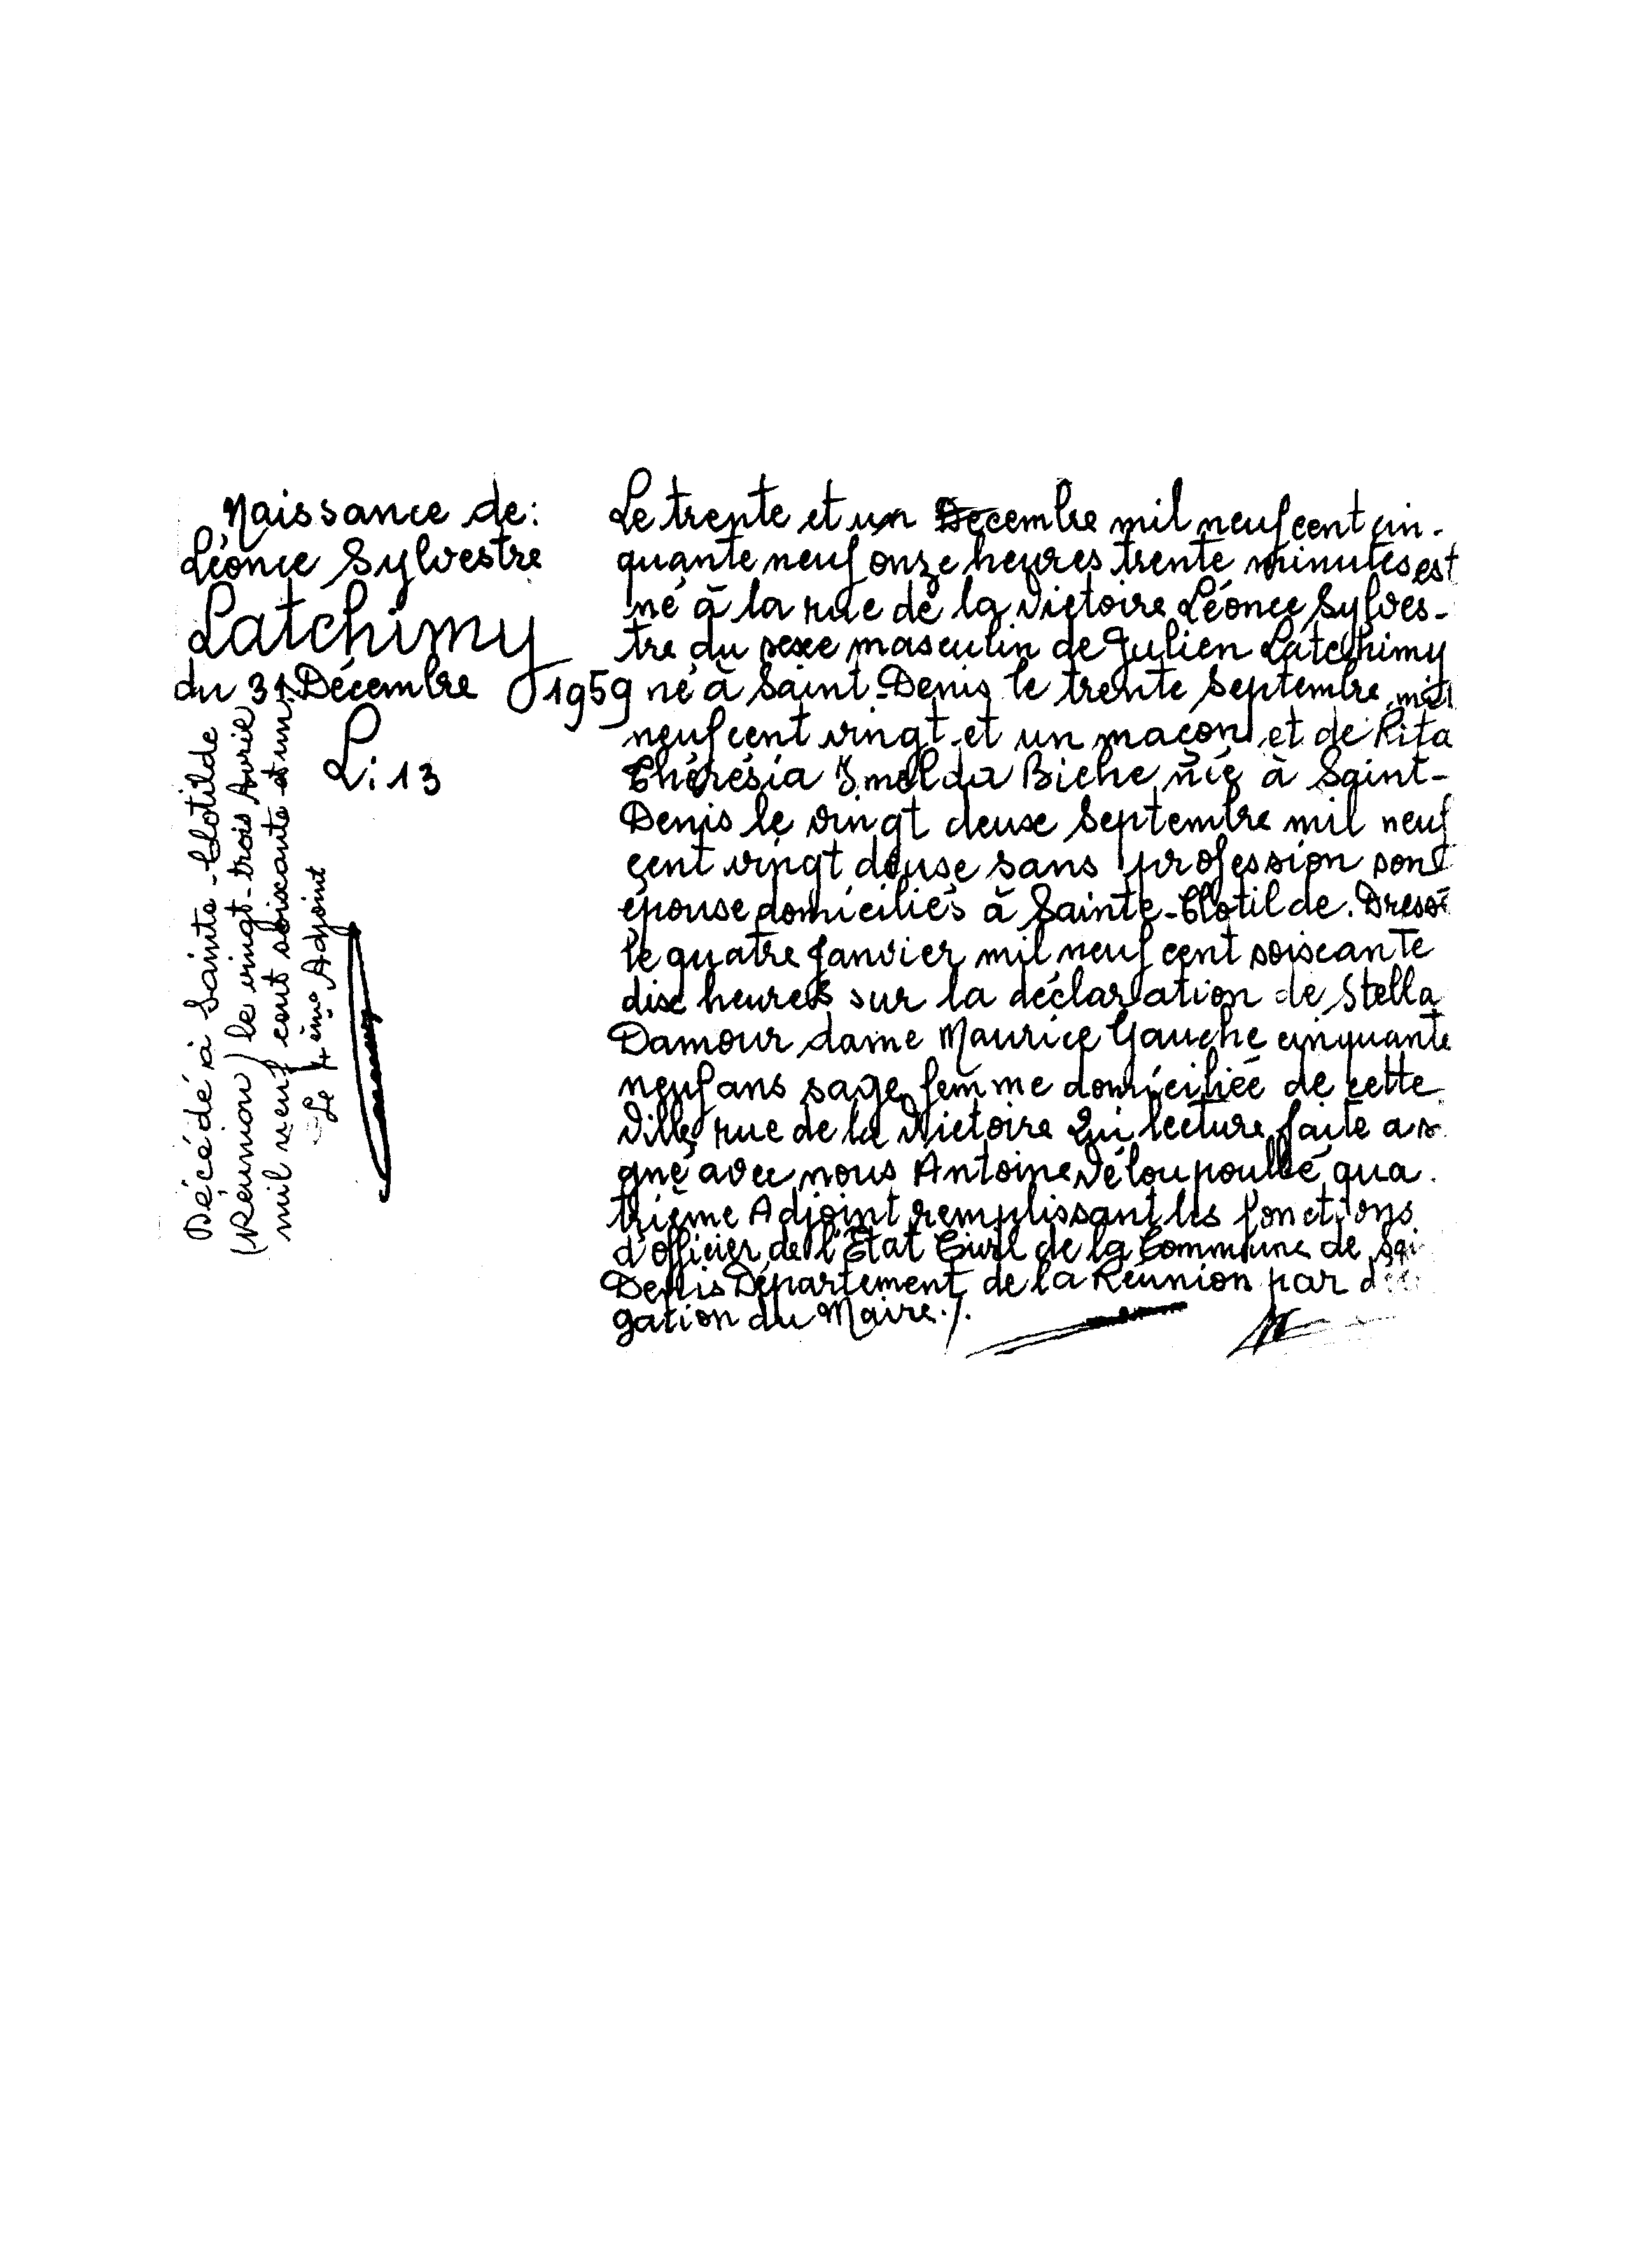 Naissance de:
Léonce Sylvestre
Latchimy
du 31 Décembre 1959
Li 13
Décédé à Sainte-Clotilde
(Réunion) le vingt-trois Avril
mil neuf cent soixante et un.
Le 4ème Adjoint
Le trente et un Décembre mil neuf cent cin-
quante neuf onze heures trente minutes est
né à la rue de la Victoire Léonce Sylves-
tre du sexe masculin de Julien Latchimy
né à Saint-Denis le trente Septembre mil
neuf cent vingt et un maçon et de Rita
Thérésia Imelda Biche née à Saint-
Denis le vingt deux Septembre mil neuf
cent vingt deux sans profession son
épouse domiciliés à Sainte-Clotilde. Dressé
le quatre Janvier mil neuf cent soixante
dix heures sur la déclaration de Stella
Damour dame Maurice Gauche cinquante
neuf ans sage femme domiciliée de cette
ville rue de la Victoire Qui lecture faite a si
gné avec nous Antoine Véloupoullé qua.
trième Adjoint remplissant les fonctions
d'officier de l'État Civil de la Commune de Sai
Denis Département de la Réunion par délé
gation du Maire./.